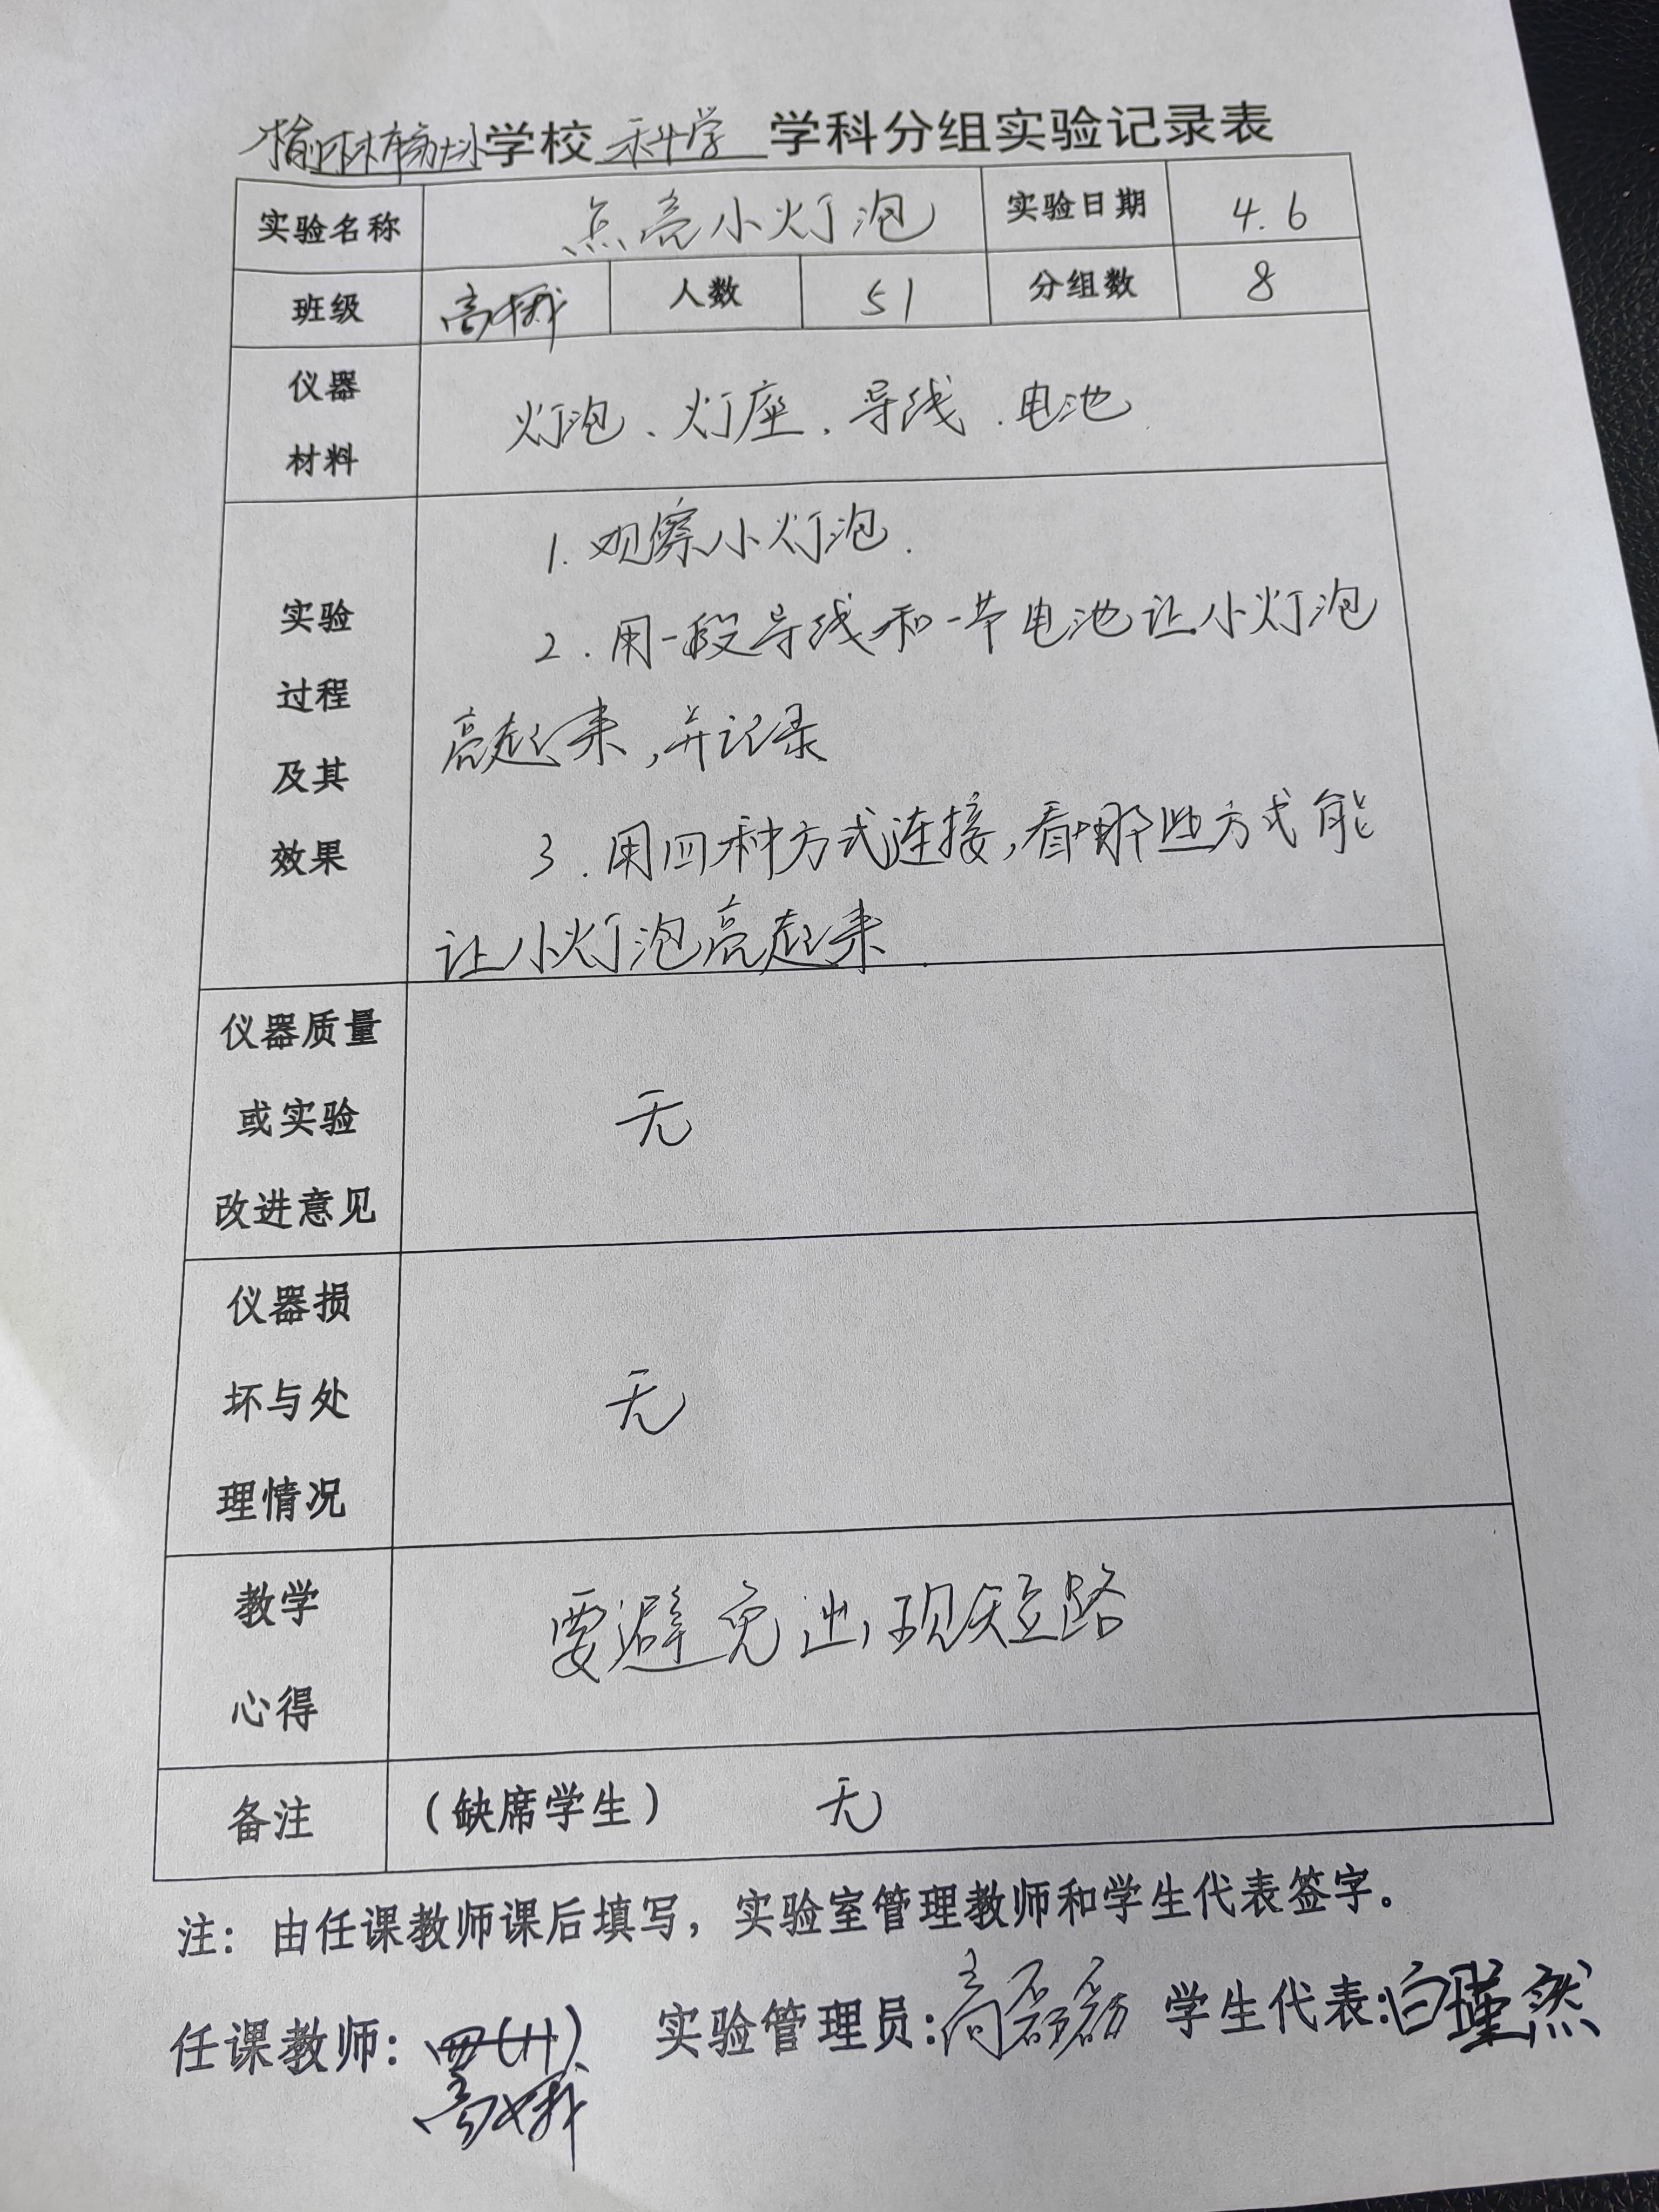 榆林市 学校 科学 学科分组实验记录表
实验名称 点亮小灯泡 实验日期 4.6
班级 高娥 人数 51 分组数 8
仪器
材料
灯泡、灯座、导线、电池
实验
过程
及其
效果
1.观察小灯泡.
2.用一段导线和一节电池让小灯泡
亮起来,并记录
3.用四种方式连接,看哪些方式能
让小灯泡亮起来.
仪器质量
或实验
改进意见
无
仪器损
坏与处
理情况
无
教学
心得
要避免出现短路
备注 (缺席学生) 无
注：由任课教师课后填写，实验室管理教师和学生代表签字。
任课教师: 实验管理员:高磊磊 学生代表:白瑾然
高娥